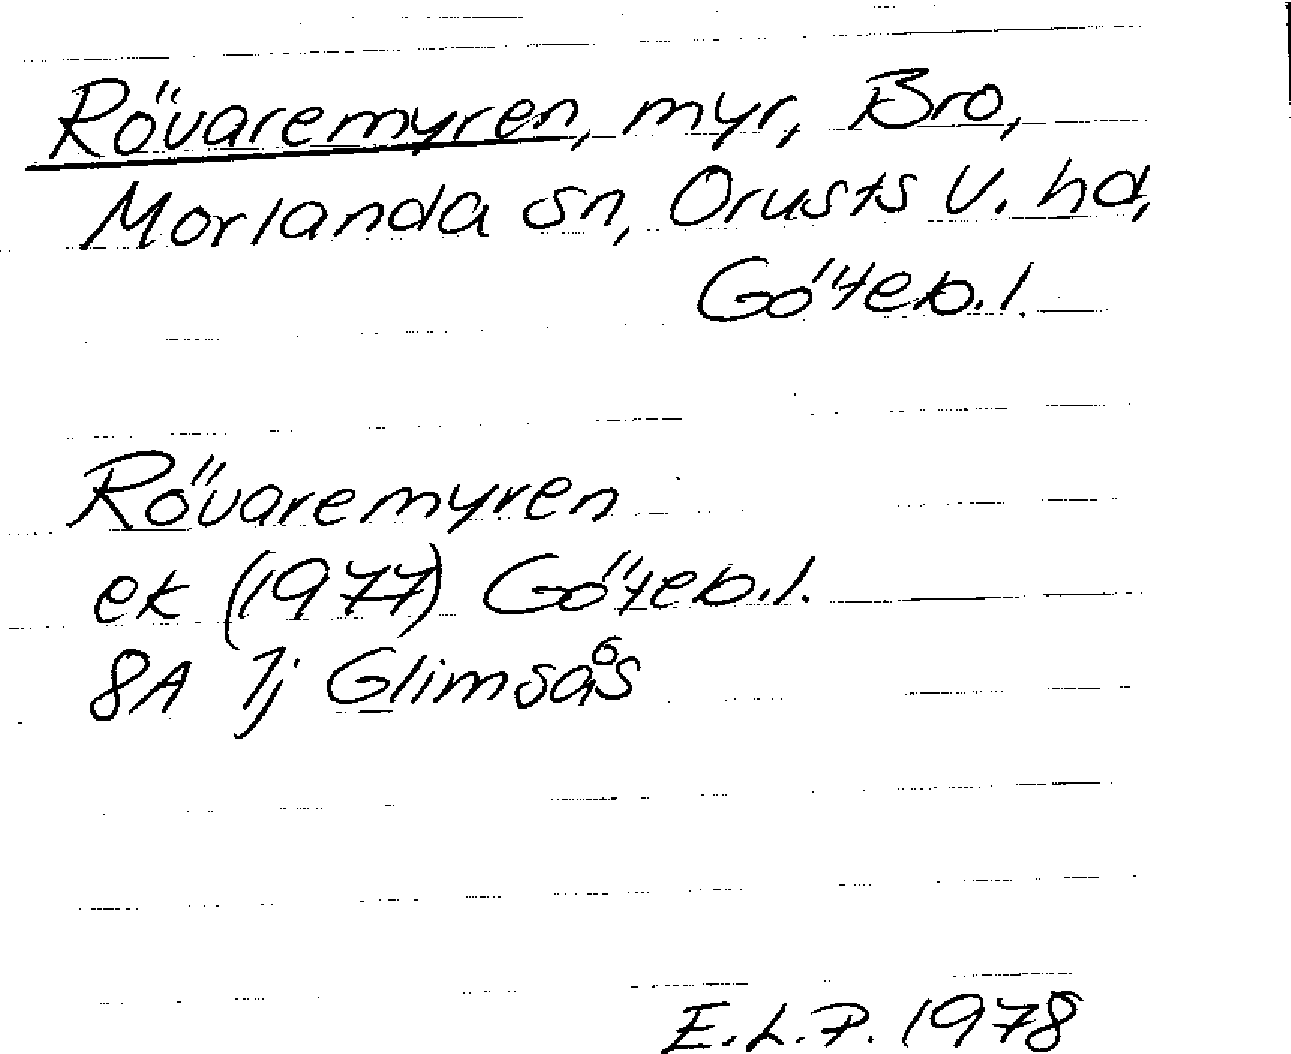 Rövaremyren, myr, Bro,
Morlanda sn, Orusts v. hd,
Göteb.l.
Rövaremyren
ek (1977) Göteb.l.
8A 1j Glimsås
E.L.P. 1978